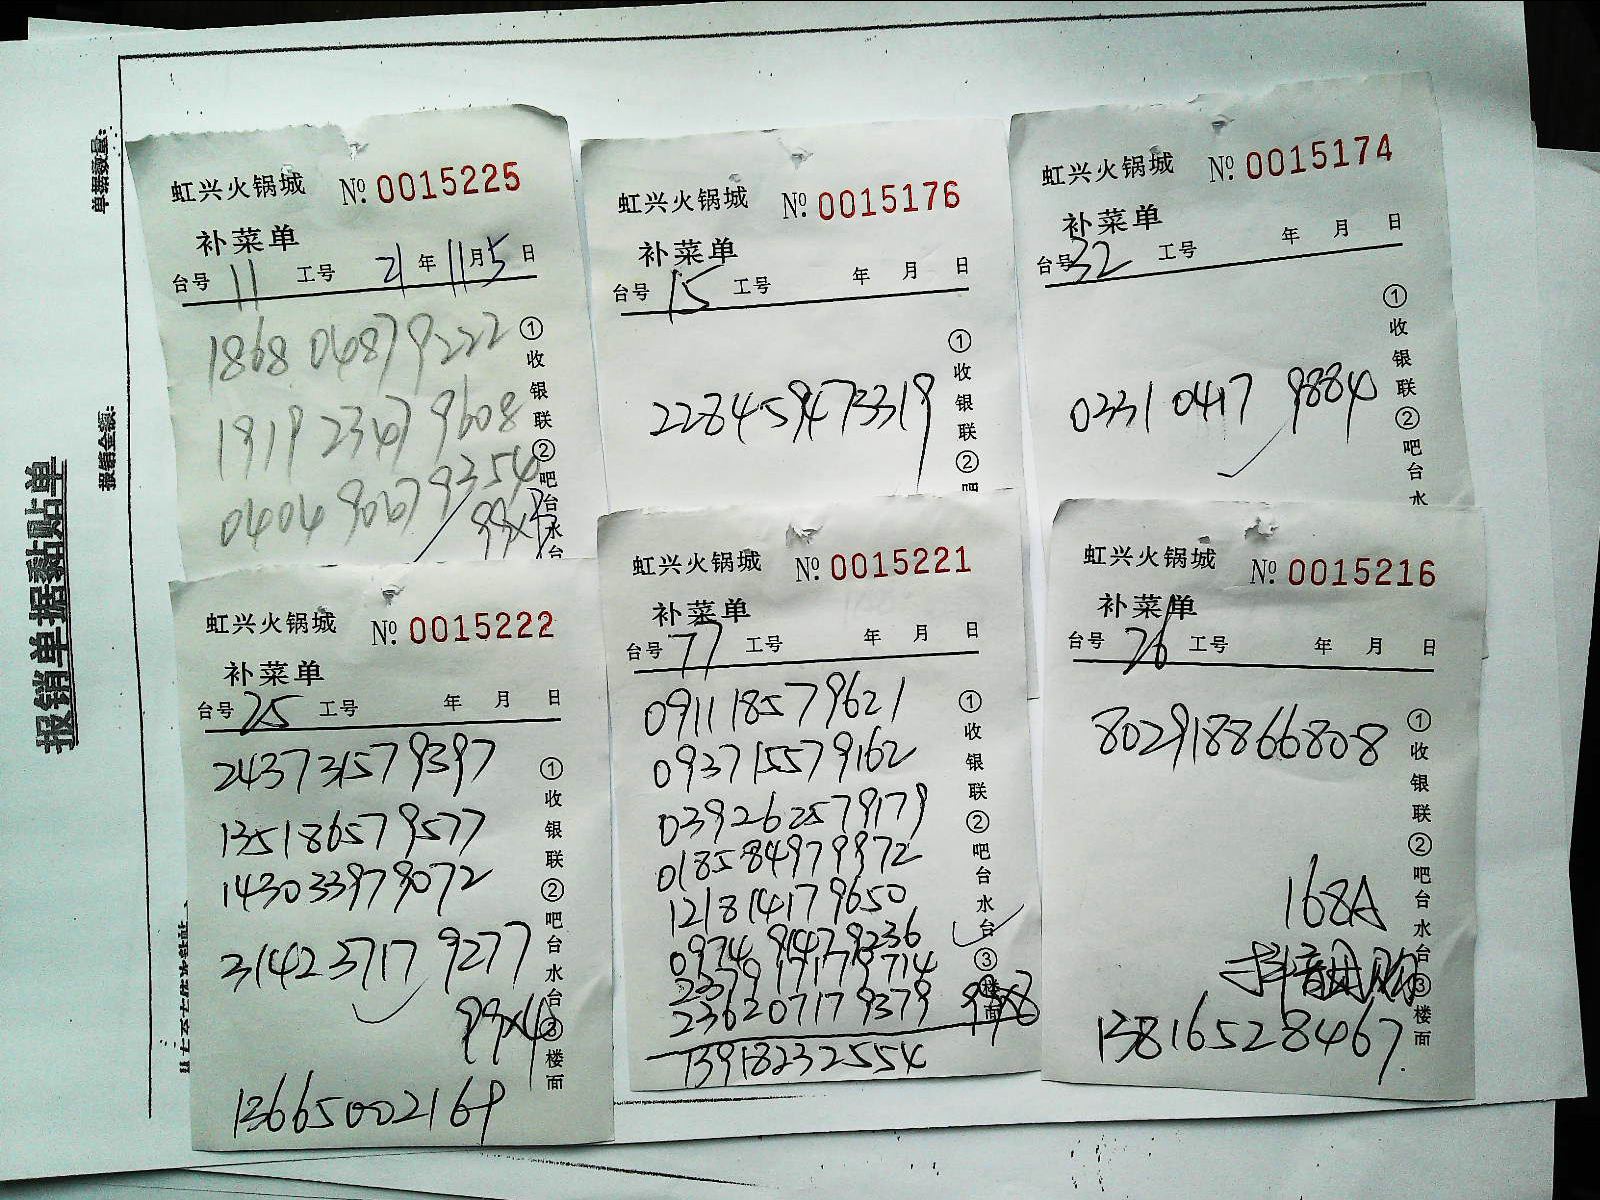 单据数量:
报销金额:
报销单据黏贴单
虹兴火锅城 №. 0015225
补菜单
台号 11 工号 21 年 11 月 5 日
1868 0487 9222
1919 2347 9608
0404 9067 9354
99x3
①收银联②吧台水台
虹兴火锅城 №. 0015176
补菜单
台号 15 工号 年 月 日
228459473319
①收银联②吧
虹兴火锅城 №. 0015174
补菜单
台号 32 工号 年 月 日
0331 0417 9884
①收银联②吧台水
虹兴火锅城 №. 0015222
补菜单
台号 25 工号 年 月 日
243731579397
135186579577
143033979072
314423717 9277
99x4
13665002169
①收银联②吧台水台③楼面
虹兴火锅城 №. 0015221
补菜单
台号 77 工号 年 月 日
0911 18579621
093715579162
039262579179
018584979972
121814179650
0974 91479236
237917179714
236207179379 99x8
13918232554
①收银联②吧台水台③楼面
虹兴火锅城 №. 0015216
补菜单
台号 26 工号 年 月 日
802918866808
168A
抖音团购
13816528467.
①收银联②吧台水台③楼面